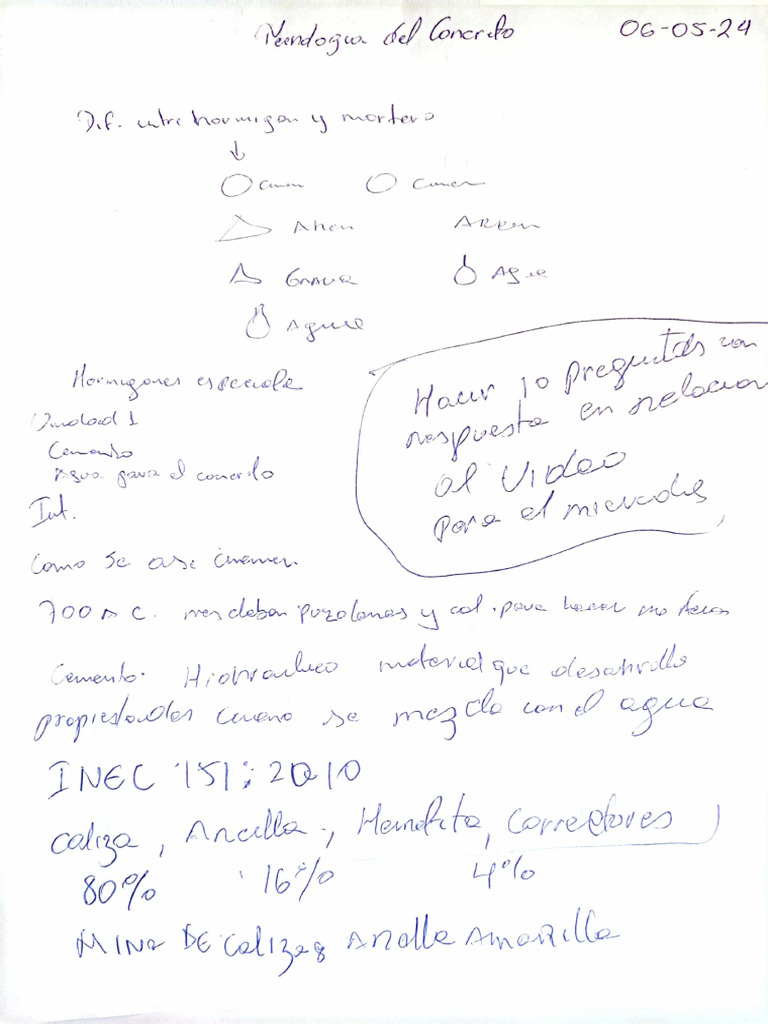 del Concreto 06-05-24
Dif. entre hormigon y mortero
Cemen Cemen
Aren Aren
Grava Agua
Agua
Hormigones especiale
Unidad 1
Cemento
Agua para el concreto
Int.
Hacer 10 Preguntas con
respuesta en relacion
al Video
para el miercoles
Como se ase
700 A C. mesclaban puzolanas y cal. para hacer morteros
Cemento. Hidraulico material que desahrollo
propiedades se mezcla con el agua
INEC 151:2010
Caliza, Arcilla, Hematita, Correctores
80% 16% 4%
MINA DE Caliza Amarilla